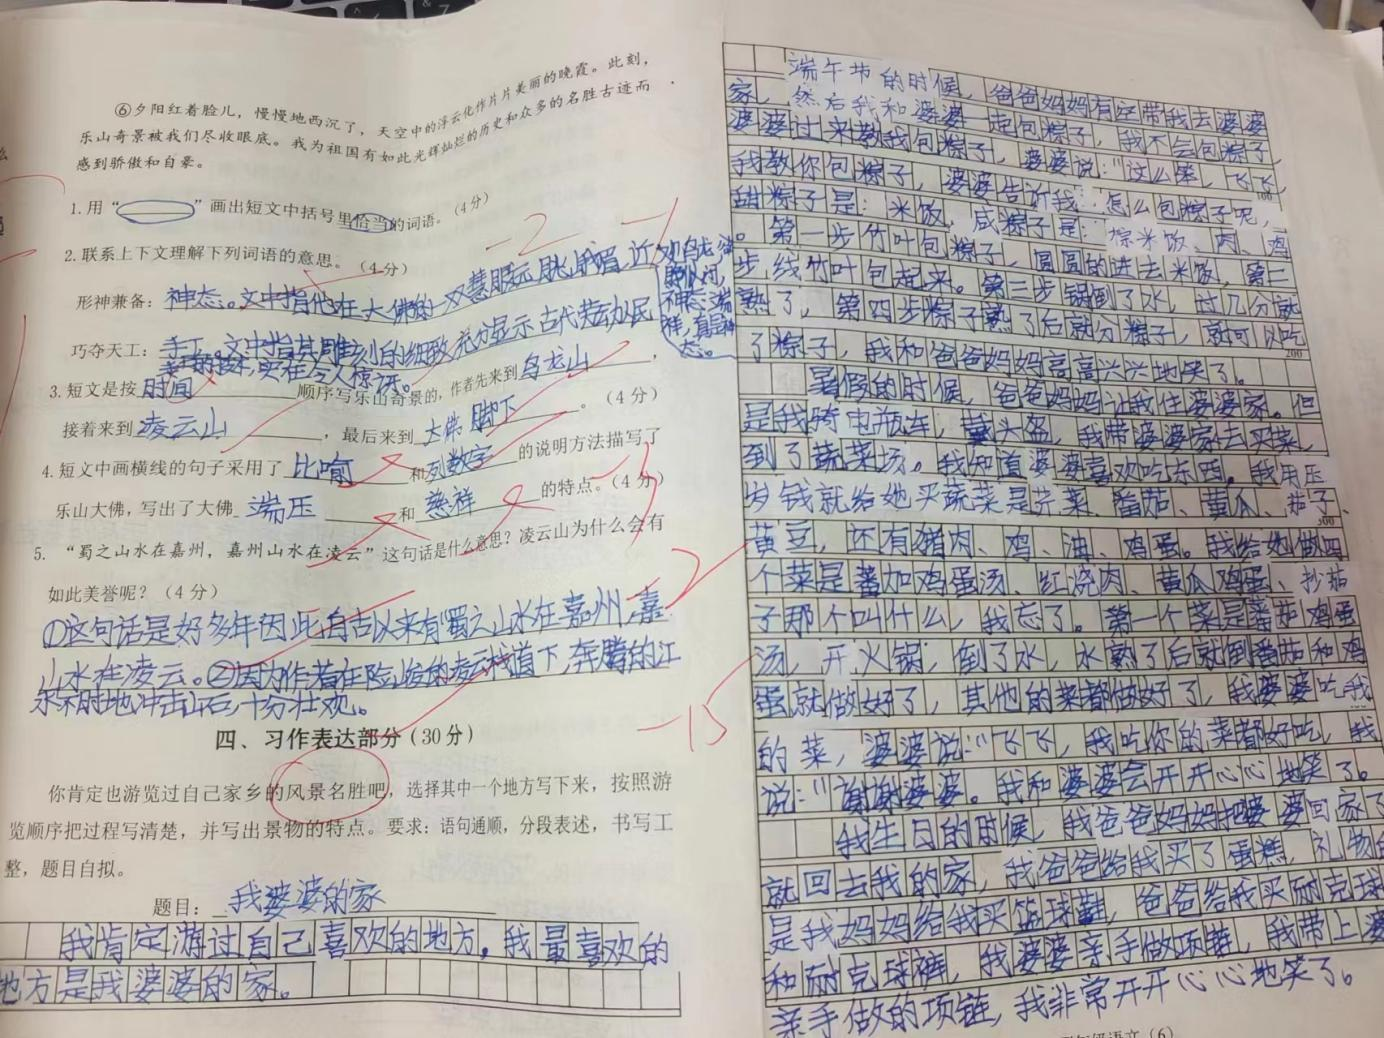 ⑥夕阳红着脸儿，慢慢地西沉了，天空中的浮云化作片片美丽的晚霞。此刻，
乐山奇景被我们尽收眼底。我为祖国有如此光辉灿烂的历史和众多的名胜古迹而
感到骄傲和自豪。
1.用“ ”画出短文中括号里恰当的词语。（4分）
-2 -1
2.联系上下文理解下列词语的意思。（4分）
形神兼备：神态。文中指他在大佛的一双慧眼
神态端祥，
巧夺天工：手工。文中指其雕刻的细致充分显示古代劳动人民
实在令人惊讶。
3.短文是按时间顺序写乐山奇景的，作者先来到乌龙山，
接着来到凌云山，最后来到大佛脚下。（4分）
4.短文中画横线的句子采用了比喻和列数字的说明方法描写了
乐山大佛，写出了大佛端压和慈祥的特点。（4分）
5. “蜀之山水在嘉州，嘉州山水在凌云”这句话是什么意思？凌云山为什么会有
如此美誉呢？（4分）
-2
①这句话是好多年因此自古以来有“蜀之山水在嘉州，嘉
山水在凌云。②因为作者在险峻的凌云栈道下，奔腾的江
水不时地冲击山石，十分壮观。
-15
四、习作表达部分（30分）
你肯定也游览过自己家乡的风景名胜吧，选择其中一个地方写下来，按照游
览顺序把过程写清楚，并写出景物的特点。要求：语句通顺，分段表述，书写工
整，题目自拟。
题目：我婆婆的家
我肯定游过自己喜欢的地方，我最喜欢的
地方是我婆婆的家。
端午节的时候，爸爸妈妈有空带我去婆婆
家，然后我和婆婆一起包粽子，我不会包粽子，
婆婆过来教我包粽子，婆婆说：“这么笨，飞飞，
我教你包粽子，婆婆告诉我：怎么包粽子呢，
100
甜粽子是：米饭，咸粽子是：粽米饭、肉、鸡
。第一步竹叶包粽子，圆圆的进去米饭，第二
步线竹叶包起来。第三步锅倒了水，过几分就
熟了，第四步粽子熟了后就分粽子，就可以吃
200
了粽子，我和爸爸妈妈高高兴兴地笑了。
暑假的时候，爸爸妈妈让我住婆婆家。但
是我骑电瓶车，戴头盔，我带婆婆家去买菜，
到了蔬菜场。我知道婆婆喜欢吃东西。我用压
岁钱就给她买蔬菜是芹菜、番茄、黄瓜、茄子、
300
黄豆，还有猪肉、鸡、油、鸡蛋。我给她做四
个菜是番加鸡蛋汤、红烧肉、黄瓜鸡蛋、抄茄
子那个叫什么，我忘了。第一个菜是番茄鸡蛋
汤，开火锅，倒了水，水熟了后就倒番茄和鸡
蛋就做好了，其他的菜都做好了，我婆婆吃我
的菜，婆婆说：“飞飞，我吃你的菜都好吃，我
说：“谢谢婆婆。我和婆婆会开开心心地笑了。
我生日的时候，我爸爸妈妈把婆婆回家了
就回去我的家，我爸爸给我买了蛋糕，礼物
是我妈妈给我买篮球鞋，爸爸给我买耐克球
和耐克球裤，我婆婆亲手做项链，我带上婆
亲手做的项链，我非常开开心心地笑了。
语文（6）